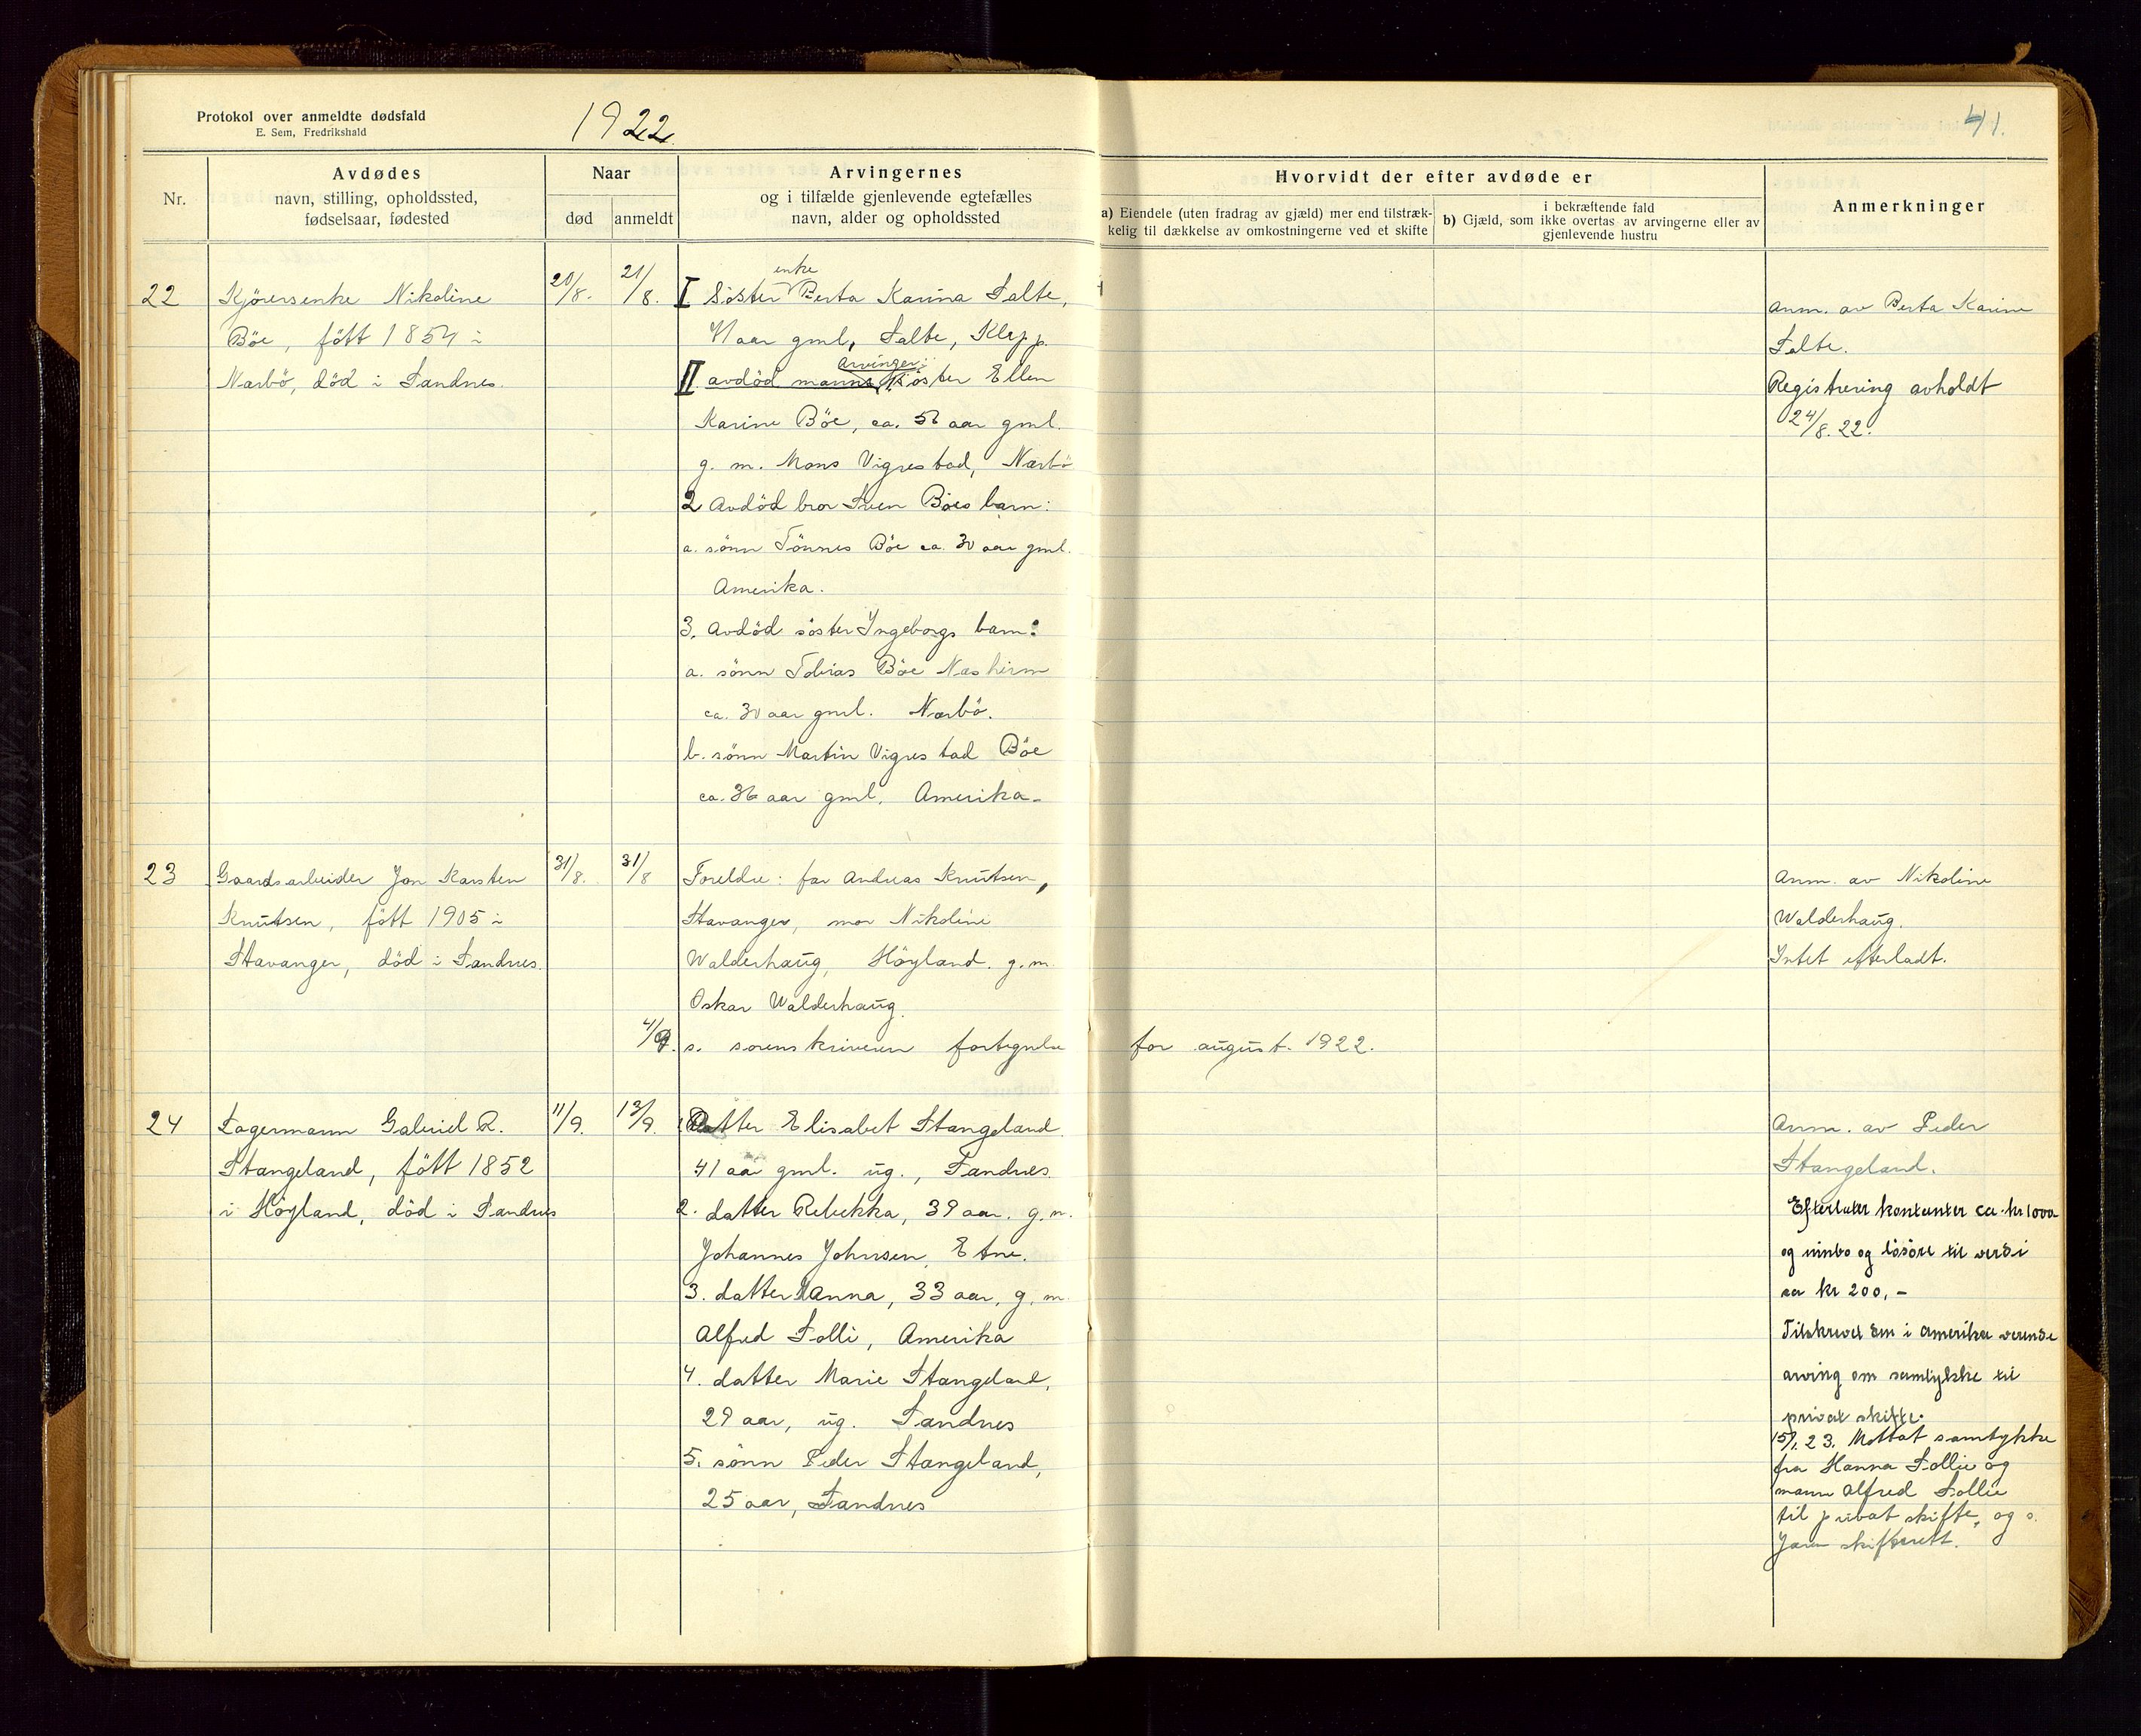 Protokol over anmeldte dødsfald
E. Sem, Fredrikshald
1922
41.
Nr.
Avdødes
navn, stilling, opholdssted,
fødselsaar, fødested
Naar
død
anmeldt
Arvingernes
og i tilfælde gjenlevende egtefælles
navn, alder og opholdssted
Hvorvidt der efter avdøde er
a) Eiendele (uten fradrag av gjæld) mer end tilstræk-
kelig til dækkelse av omkostningerne ved et skifte
i bekræftende fald
b) Gjæld, som ikke overtas av arvingerne eller av
gjenlevende hustru
Anmerkninger
22
Kjörersenke Nikoline
Böe, fött 1854 i
Narbö, död i Sandnes.
20/8.
21/8.
enke
I Söster Berta Karina Salte,
71 aar gml, Salte, Klepp.
Arvinger:
II avdöd manns söster Ellen
Karine Böe, ca. aar gml.
g. m. Mons Vigrestad, Narbö
2 Avdöd bror Sven Böes barn:
a. sönn Tönnes Böe ca. 30 aar gml.
Amerika.
3. Avdöd söster Ingeborgs barn:
a. sönn Tobias Böe Nasheim
ca. 30 aar gml. Narbö.
b. sönn Martin Vigrestad Böe
ca. 36 aar gml. Amerika.
Anm. av Berta Karine
Salte.
Registrering avholdt
24/8. 22.
23
Gaardsarbeider Jon Karsten
Knutsen, fött 1905 i
Stavanger, död i Sandnes.
31/8.
31/8
Foreldre: far Andreas Knutsen,
Stavanger, mor Nikoline
Walderhaug, Höyland. g. m.
Oskar Walderhaug.
4/9. s. sorenskriveren fortegnelse for august. 1922.
Anm. av Nikoline
Walderhaug.
Intet efterladt.
24
Lagermann Gabriel R.
Stangeland, fött 1852
i Höyland, död i Sandnes
11/9.
13/9.
1. Datter Elisabet Stangeland.
41 aar gml. ug., Sandnes.
2. datter Rebekka, 39 aar. g. m.
Johannes Johnsen, Etne.
3. datter Hanna, 33 aar, g. m.
Alfred Solli, Amerika
4. datter Marie Stangeland,
29 aar, ug. Sandnes
5. sönn Peder Stangeland,
25 aar, Sandnes
Anm. av Peder
Stangeland.
Efterlater kontanter ca. kr 1000
og innbo og lösöre til verdi
ca kr 200,-
Tilskrevet den i Amerika verende
arving om samtykke til
privat skifte.
15/1. 23. Mottat samtykke
fra Hanna Sollie og
mann Alfred Sollie
til privat skifte, og s.
Jæren skifterett.